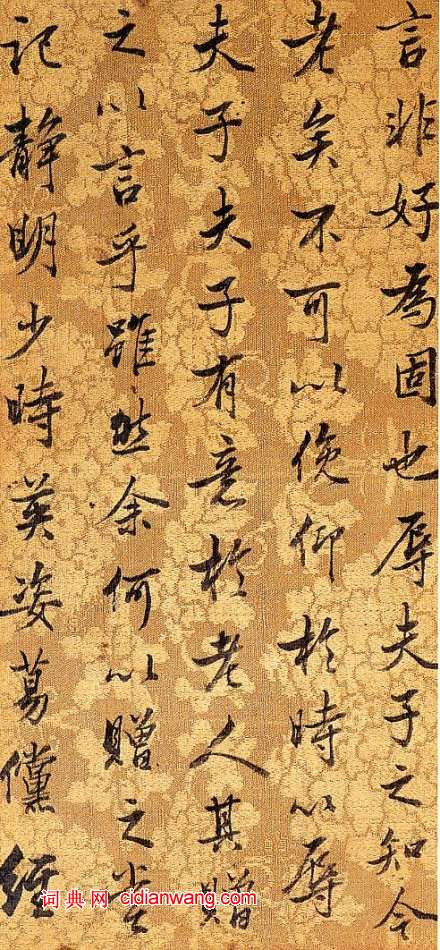 言非好為固也辱夫子之知今
老矣不可以俛仰於時以辱
夫子夫子有意於老人其贈
之以言乎雖然余何以贈之嘗
記靜明少時英姿儻經
词典网 cidianwang.com